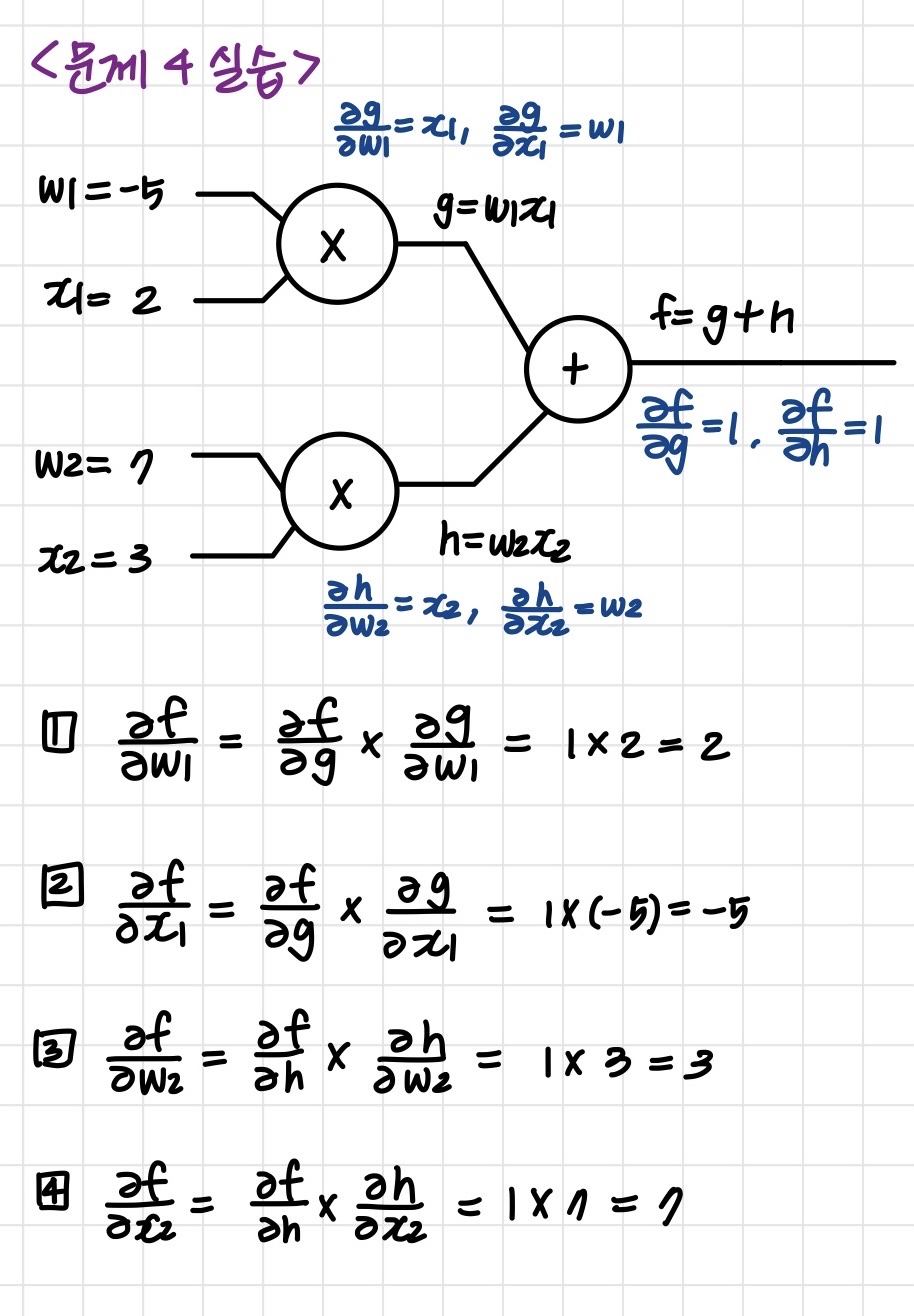 <문제 4 실습>
∂g/∂w1 = x1, ∂g/∂x1 = w1
w1 = -5
x
g = w1x1
x1 = 2
f = g + h
+
∂f/∂g = 1, ∂f/∂h = 1
w2 = 7
x
x2 = 3
h = w2x2
∂h/∂w2 = x2, ∂h/∂x2 = w2
1 ∂f/∂w1 = ∂f/∂g × ∂g/∂w1 = 1 × 2 = 2
2 ∂f/∂x1 = ∂f/∂g × ∂g/∂x1 = 1 × (-5) = -5
3 ∂f/∂w2 = ∂f/∂h × ∂h/∂w2 = 1 × 3 = 3
4 ∂f/∂x2 = ∂f/∂h × ∂h/∂x2 = 1 × 7 = 7